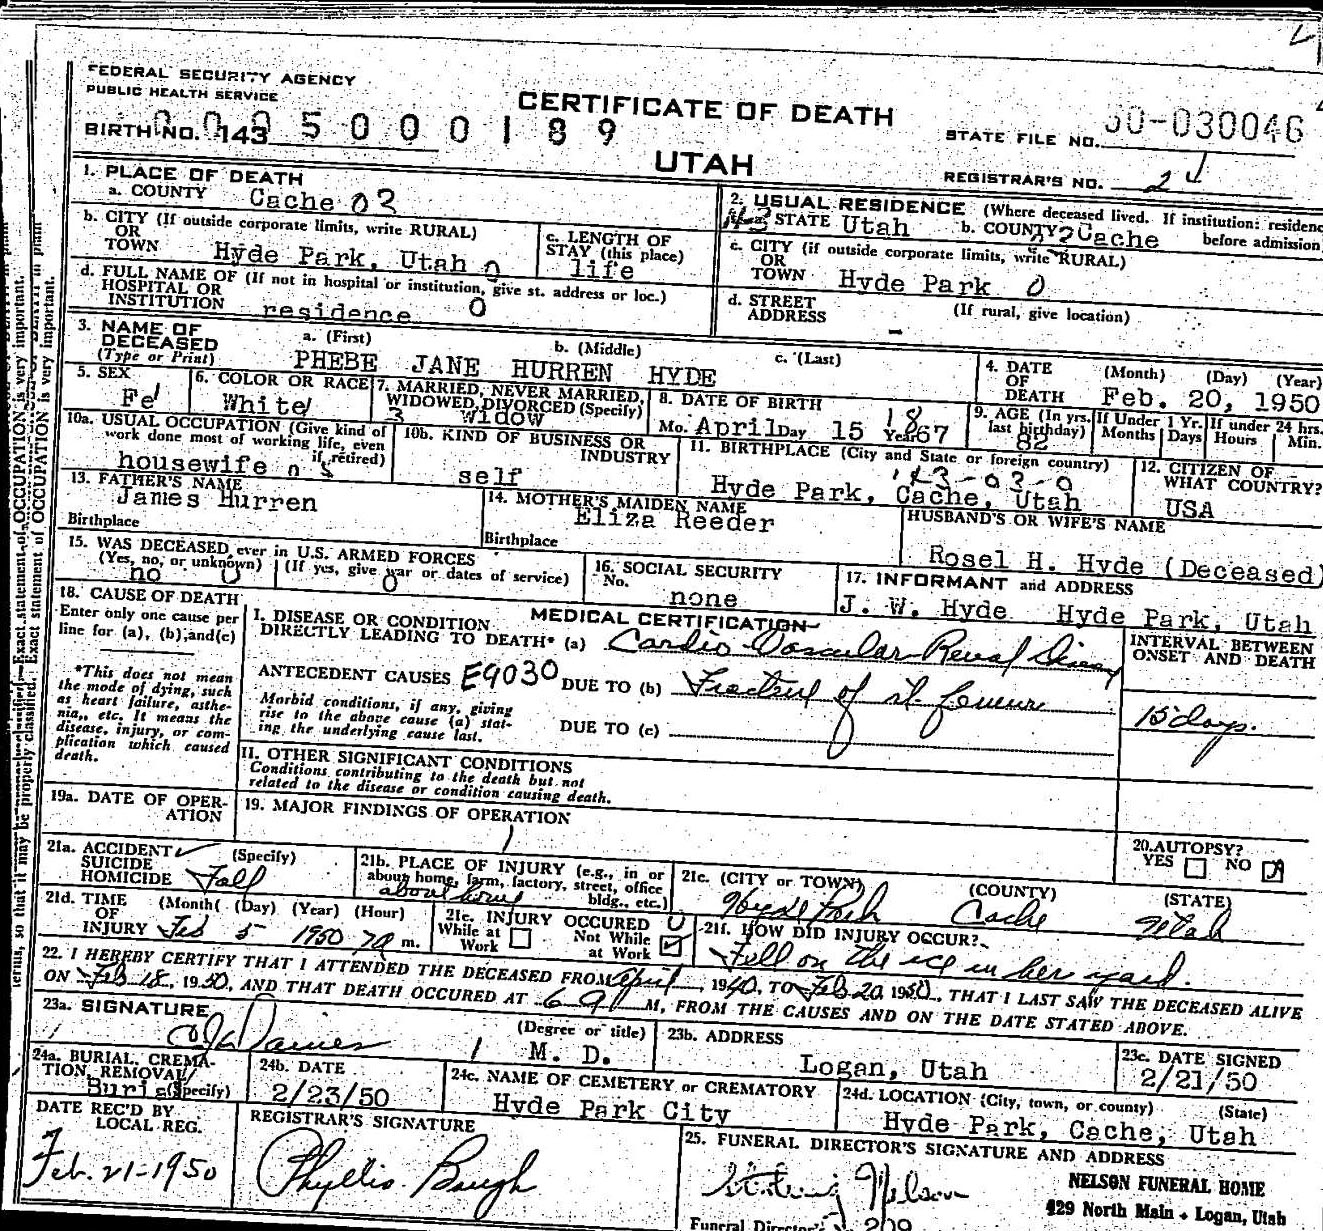 FEDERAL SECURITY AGENCY
PUBLIC HEALTH SERVICE
CERTIFICATE OF DEATH
BIRTH NO. 143
0005000189
STATE FILE NO. 50-030046
UTAH
REGISTRAR'S NO. 24
1. PLACE OF DEATH
a. COUNTY Cache 03
2. USUAL RESIDENCE (Where deceased lived. If institution: residence before admission)
a. STATE Utah b. COUNTY Cache
b. CITY (If outside corporate limits, write RURAL)
OR
TOWN Hyde Park, Utah 0
c. LENGTH OF
STAY (this place)
life
c. CITY (if outside corporate limits, write RURAL)
OR
TOWN Hyde Park 0
d. FULL NAME OF (If not in hospital or institution, give st. address or loc.)
HOSPITAL OR
INSTITUTION residence 0
d. STREET
ADDRESS - (If rural, give location)
3. NAME OF
DECEASED
(Type or Print)
a. (First) b. (Middle) c. (Last)
PHEBE JANE HURREN HYDE
4. DATE
OF
DEATH
(Month) (Day) (Year)
Feb. 20, 1950
5. SEX
Fe
6. COLOR OR RACE
White
7. MARRIED, NEVER MARRIED,
WIDOWED, DIVORCED (Specify)
3 Widow
8. DATE OF BIRTH
Mo. April Day 15 Year 1867
9. AGE (In yrs. last birthday)
82
If Under 1 Yr.
Months Days
If under 24 hrs.
Hours Min.
10a. USUAL OCCUPATION (Give kind of
work done most of working life, even
if retired)
housewife
10b. KIND OF BUSINESS OR
INDUSTRY
self
11. BIRTHPLACE (City and State or foreign country)
Hyde Park, Cache, Utah
12. CITIZEN OF
WHAT COUNTRY?
USA
13. FATHER'S NAME
James Hurren
Birthplace
14. MOTHER'S MAIDEN NAME
Eliza Reeder
Birthplace
HUSBAND'S OR WIFE'S NAME
Rosel H. Hyde (Deceased)
15. WAS DECEASED ever in U.S. ARMED FORCES
(Yes, no, or unknown) (If yes, give war or dates of service)
no 0 0
16. SOCIAL SECURITY
No.
none
17. INFORMANT and ADDRESS
J. W. Hyde Hyde Park, Utah
18. CAUSE OF DEATH
Enter only one cause per
line for (a), (b), and (c)
MEDICAL CERTIFICATION
I. DISEASE OR CONDITION
DIRECTLY LEADING TO DEATH* (a) Cardio Vascular Renal Disease
INTERVAL BETWEEN
ONSET AND DEATH
*This does not mean
the mode of dying, such
as heart failure, asthe-
nia, etc. It means the
disease, injury, or com-
plication which caused
death.
ANTECEDENT CAUSES E9030 DUE TO (b) Fracture of rt. femur
15 days.
Morbid conditions, if any, giving
rise to the above cause (a) stat-
ing the underlying cause last.
DUE TO (c)
II. OTHER SIGNIFICANT CONDITIONS
Conditions contributing to the death but not
related to the disease or condition causing death.
19a. DATE OF OPER-
ATION
19. MAJOR FINDINGS OF OPERATION
20. AUTOPSY?
YES NO
21a. ACCIDENT
SUICIDE
HOMICIDE
(Specify)
Fall
21b. PLACE OF INJURY (e.g., in or
about home, farm, factory, street, office
bldg., etc.)
about home
21c. (CITY or TOWN) (COUNTY) (STATE)
Hyde Park Cache Utah
21d. TIME
OF
INJURY
(Month) (Day) (Year) (Hour)
Feb 5 1950 7a m.
21e. INJURY OCCURED
While at
Work
Not While
at Work
21f. HOW DID INJURY OCCUR?
Fell on the ice in her yard.
22. I HEREBY CERTIFY THAT I ATTENDED THE DECEASED FROM April, 1940, TO Feb 20, 1950, THAT I LAST SAW THE DECEASED ALIVE
ON Feb 18, 1950, AND THAT DEATH OCCURED AT 6 a M, FROM THE CAUSES AND ON THE DATE STATED ABOVE.
23a. SIGNATURE
Daines
(Degree or title)
M. D.
23b. ADDRESS
Logan, Utah
23c. DATE SIGNED
2/21/50
24a. BURIAL, CREMA-
TION, REMOVAL
(Specify)
Burial
24b. DATE
2/23/50
24c. NAME OF CEMETERY or CREMATORY
Hyde Park City
24d. LOCATION (City, town, or county) (State)
Hyde Park, Cache, Utah
DATE REC'D BY
LOCAL REG.
Feb. 21-1950
REGISTRAR'S SIGNATURE
Phyllis Baugh
25. FUNERAL DIRECTOR'S SIGNATURE AND ADDRESS
Nelson
NELSON FUNERAL HOME
429 North Main, Logan, Utah
Funeral Director's 209